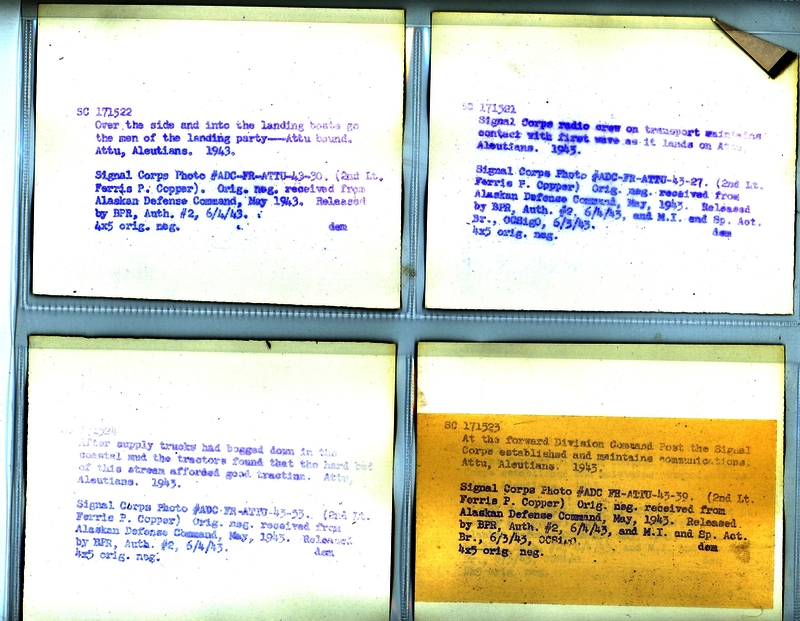 SC 171522
Over the side and into the landing boats go
the men of the landing party---Attu bound.
Attu, Aleutians. 1943.
Signal Corps Photo #ADC-FR-ATTU-43-30. (2nd Lt.
Ferris P. Copper). Orig. neg. received from
Alaskan Defense Command, May 1943. Released
by BPR, Auth. #2, 6/4/43.
4x5 orig. neg. dem
SC 171521
Signal Corps radio crew on transport maintains
contact with first wave as it lands on Attu,
Aleutians. 1943.
Signal Corps Photo #ADC-FR-ATTU-43-27. (2nd Lt.
Ferris P. Copper) Orig. neg. received from
Alaskan Defense Command, May, 1943. Released
by BPR, Auth. #2, 6/4/43, and M.I. and Sp. Act.
Br., OCSigO, 6/3/43. dem
4x5 orig. neg.
171524
After supply trucks had bogged down in the
coastal mud the tractors found that the hard bed
of this stream afforded good traction. Attu,
Aleutians. 1943.
Signal Corps Photo #ADC-FR-ATTU-43-53. (2nd Lt.
Ferris P. Copper) Orig. neg. received from
Alaskan Defense Command, May, 1943. Released
by BPR, Auth. #2, 6/4/43. dem
4x5 orig. neg.
SC 171523
At the forward Division Command Post the Signal
Corps established and maintains communications.
Attu, Aleutians. 1943.
Signal Corps Photo #ADC FR-ATTU-43-39. (2nd Lt.
Ferris P. Copper) Orig. neg. received from
Alaskan Defense Command, May, 1943. Released
by BPR, Auth. #2, 6/4/43, and M.I. and Sp. Act.
Br., 6/3/43, OCSigO. dem
4x5 orig. neg.